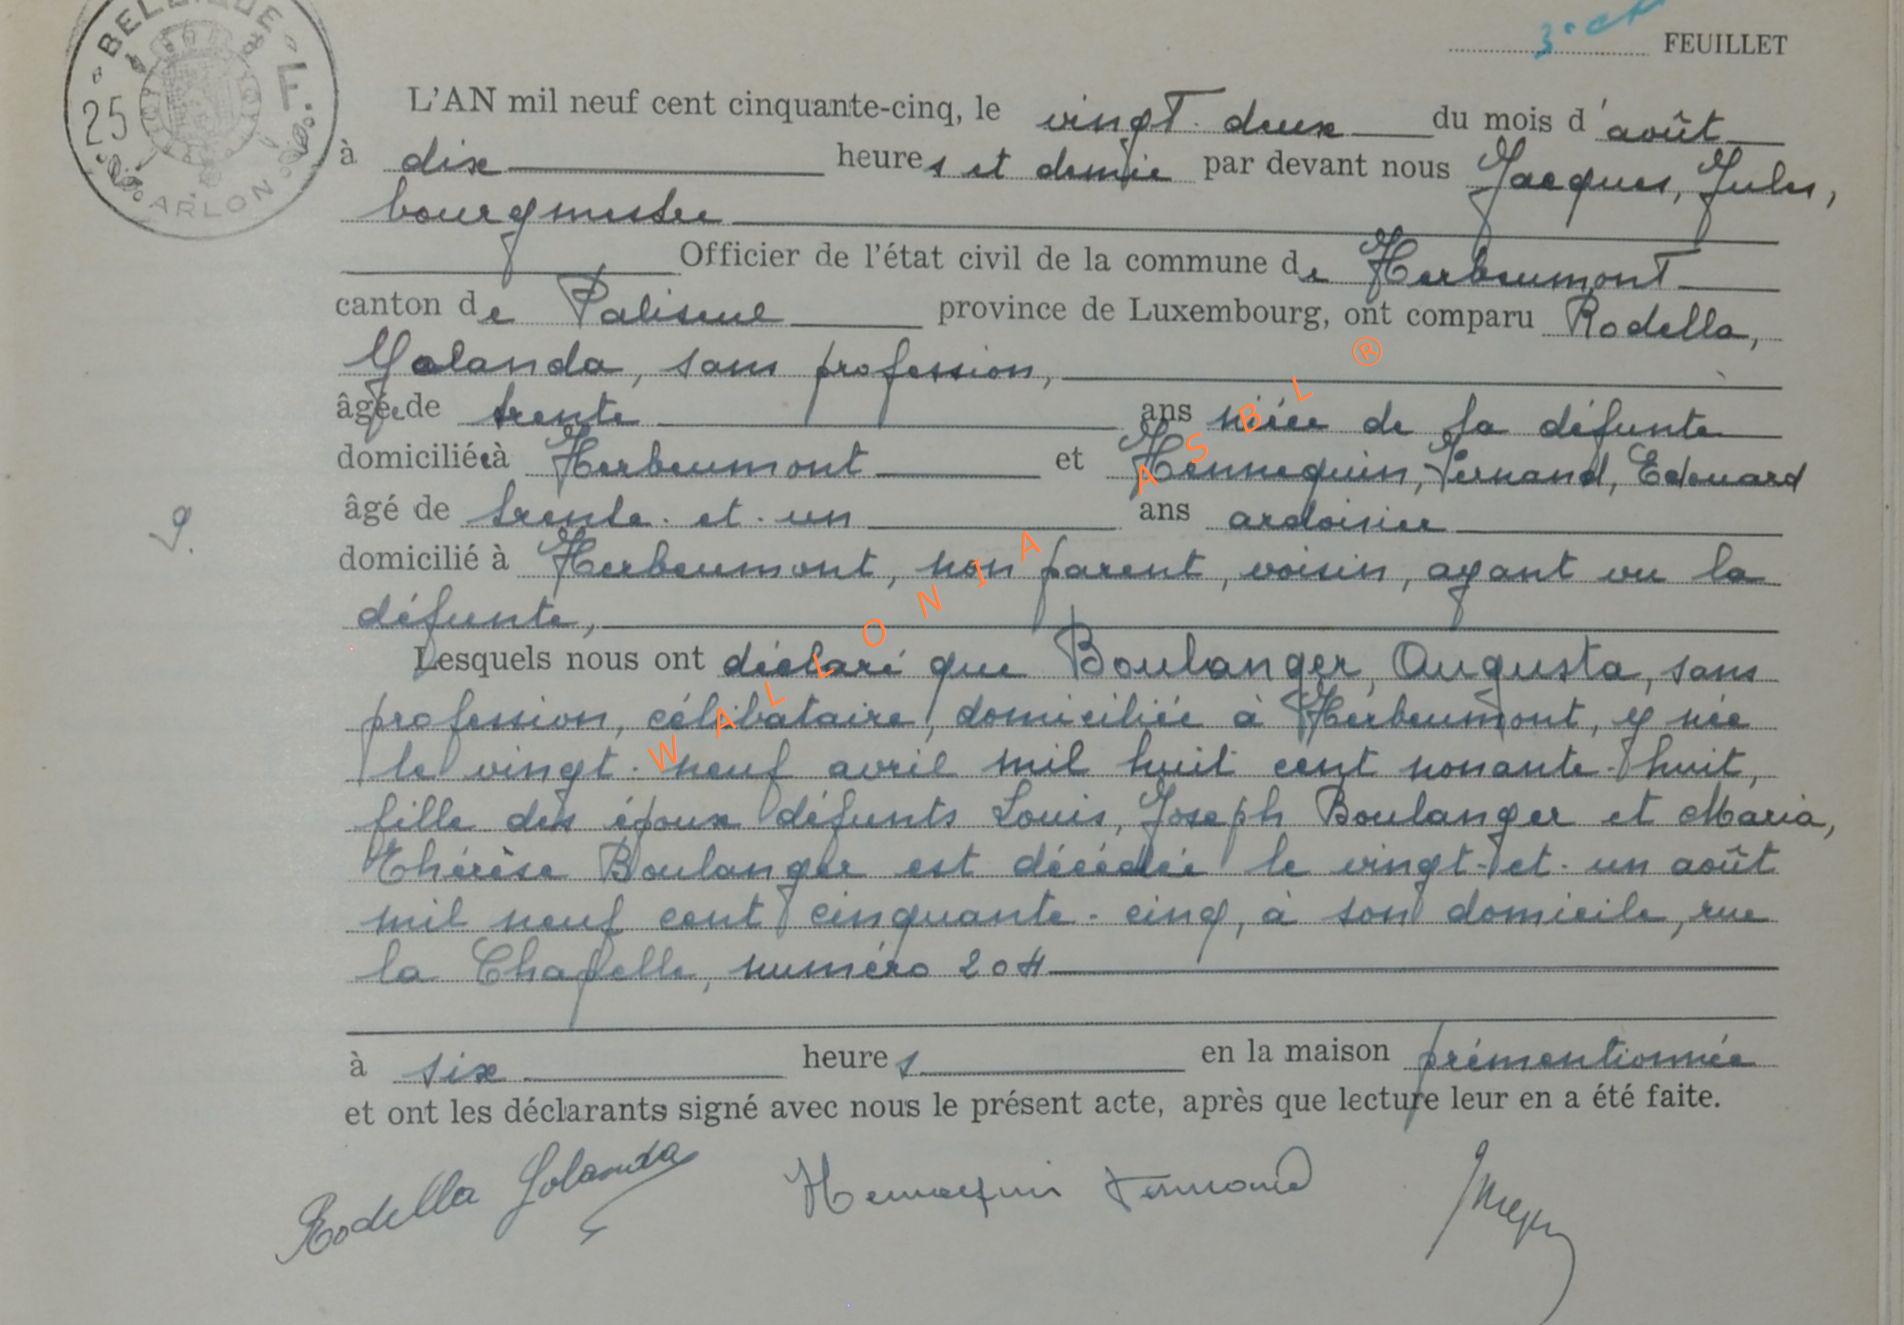 BELGIQUE
25 F.
ARLON
3e et FEUILLET
L'AN mil neuf cent cinquante-cinq, le vingt-deux du mois d'août
à dix heures et demie par devant nous Jacques, Jules,
bourgmestre
Officier de l'état civil de la commune de Herbeumont
canton de Paliseul province de Luxembourg, ont comparu Rodella,
Yolanda, sans profession,
âgée de trente ans nièce de la défunte
domiciliée à Herbeumont et Hennequin, Fernand, Edouard
âgé de trente-et-un ans ardoisier
domicilié à Herbeumont, non parent, voisin, ayant vu la
défunte,
Lesquels nous ont déclaré que Boulanger, Augusta, sans
profession, célibataire, domiciliée à Herbeumont, y née
le vingt-neuf avril mil huit cent nonante-huit,
fille des époux défunts Louis, Joseph Boulanger et Maria,
Thérèse Boulanger est décédée le vingt-et-un août
mil neuf cent cinquante-cinq, à son domicile, rue
la Chapelle, numéro 204
à six heures en la maison prémentionnée
et ont les déclarants signé avec nous le présent acte, après que lecture leur en a été faite.
Rodella Yolanda Hennequin Fernand
WALLONIA ASBL ®